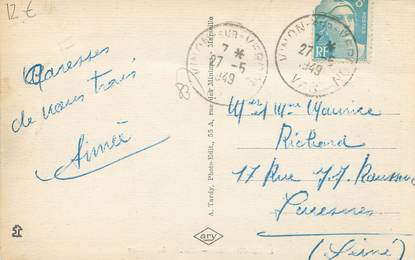 12 €
VINON-SUR-VERDON
7 *
27-5
1949
VINON-SUR-VERDON
27 *
1949
VAR
RF
83
Caresses
de nous trois
Aimée
A. Tardy, Photo-Edit., 55 A, rue des Minimes, Marseille
ary
Mr et Mme Maurice
Richard
17 Rue J.J. Rousseau
Suresnes
(Seine)